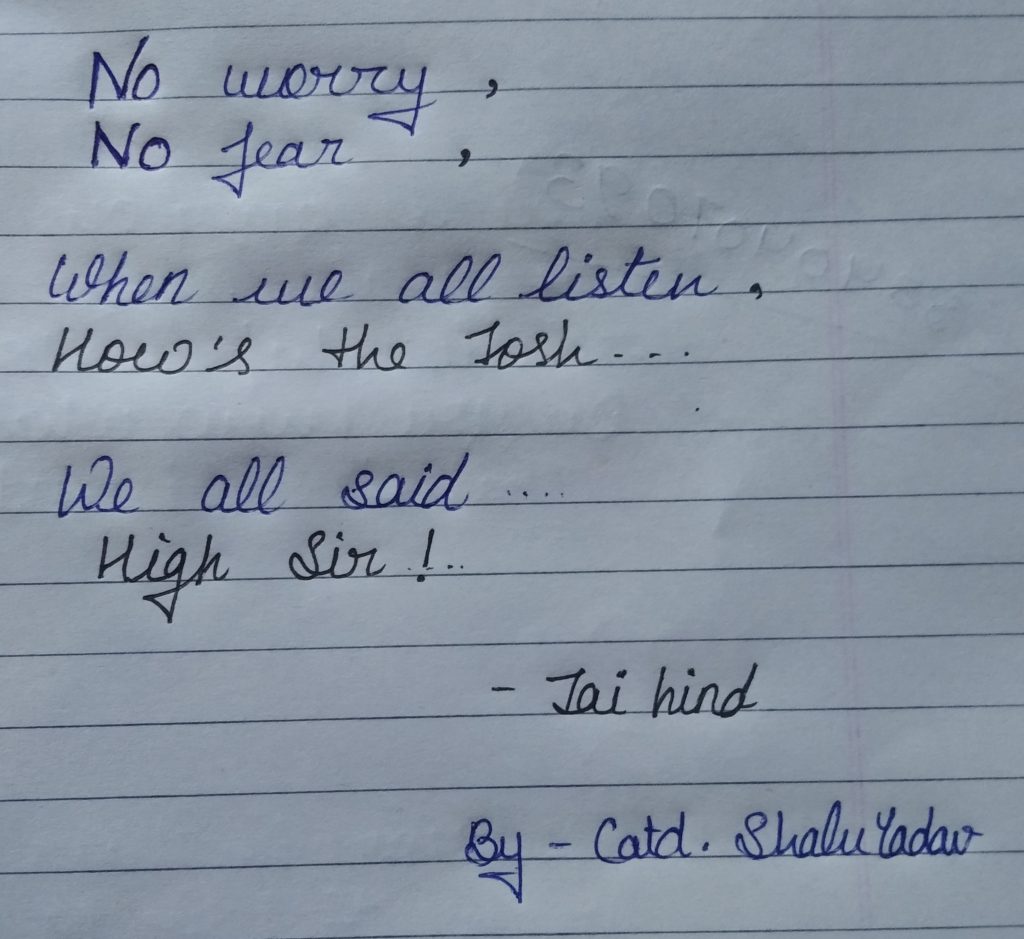 No worry ,
No fear ,
When we all listen ,
How's the Josh...
We all said ....
High Sir !..
- Jai hind
By - Catd. Shalu Yadav